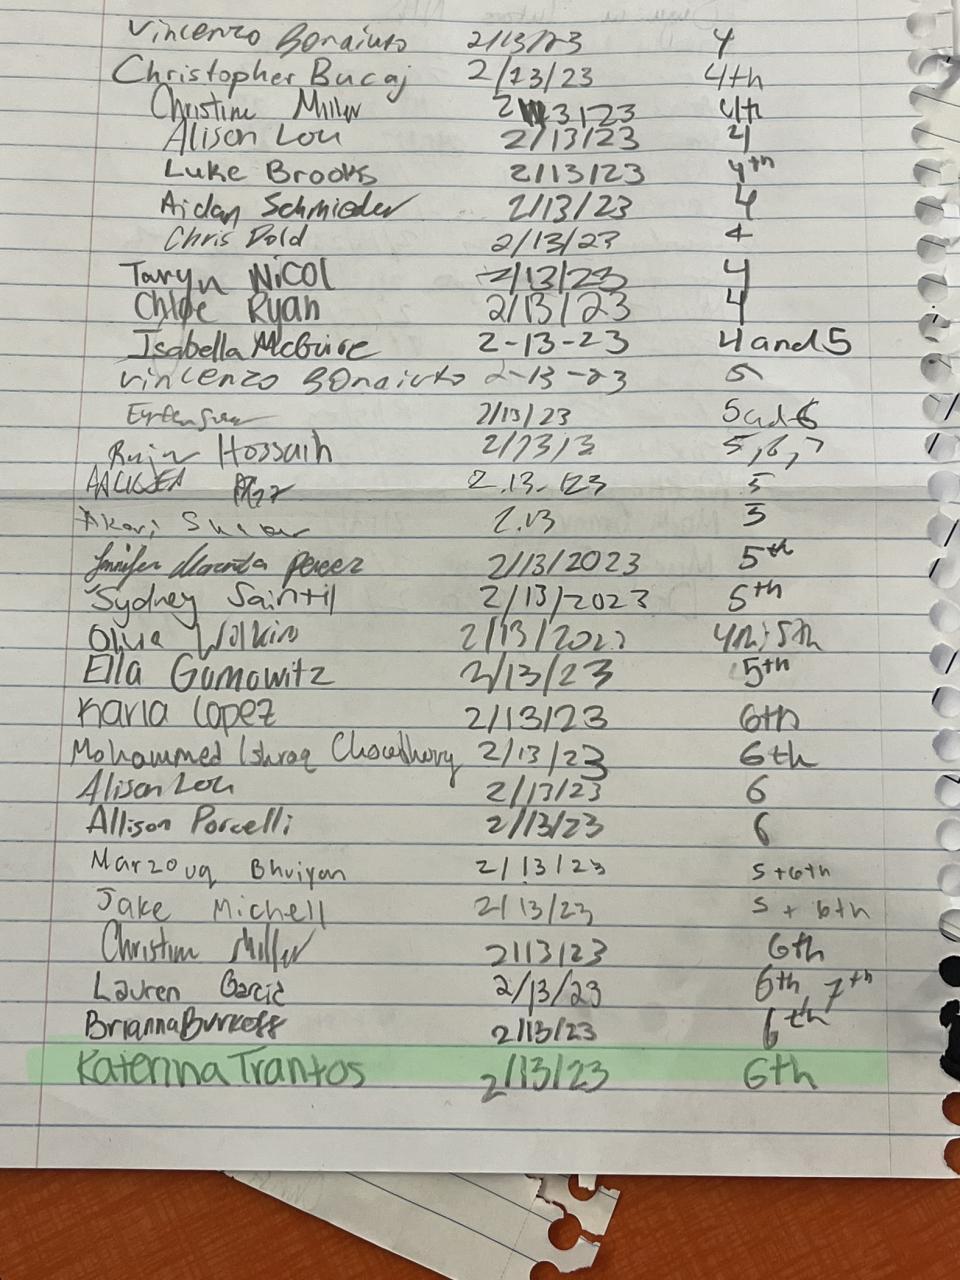 Vincenzo Bonaiuto 2/13/23 4
Christopher Bucaj 2/13/23 4th
Christine Miller 2/13/23 4th
Alison Lou 2/13/23 4
Luke Brooks 2/13/23 4th
Aidan Schmieder 2/13/23 4
Chris Dold 2/13/23 4
Taryn Nicol 2/13/23 4
Chloe Ryan 2/13/23 4
Isabella McGuire 2-13-23 4 and 5
Vincenzo Bonaiuto 2-13-23 5
2/13/23 5 and 6
Hossain 2/13/3 5,6,7
2.13.23 5
Akari 2.13 5
Jennifer Perez 2/13/2023 5th
Sydney Saintil 2/13/2023 5th
Olivia Wolkin 2/13/2023 4th; 5th
Ella Gomowitz 2/13/23 5th
Karla Lopez 2/13/23 6th
Mohammed Ishraq Chowdhury 2/13/23 6th
Alison Lou 2/13/23 6
Allison Porcelli 2/13/23 6
Marzouq Bhuiyan 2/13/23 5+6th
Jake Michell 2/13/23 5 + 6th
Christine Miller 2/13/23 6th
Lauren Garcia 2/13/23 6th, 7th
Brianna Burkett 2/13/23 6th
Katerina Trantos 2/13/23 6th